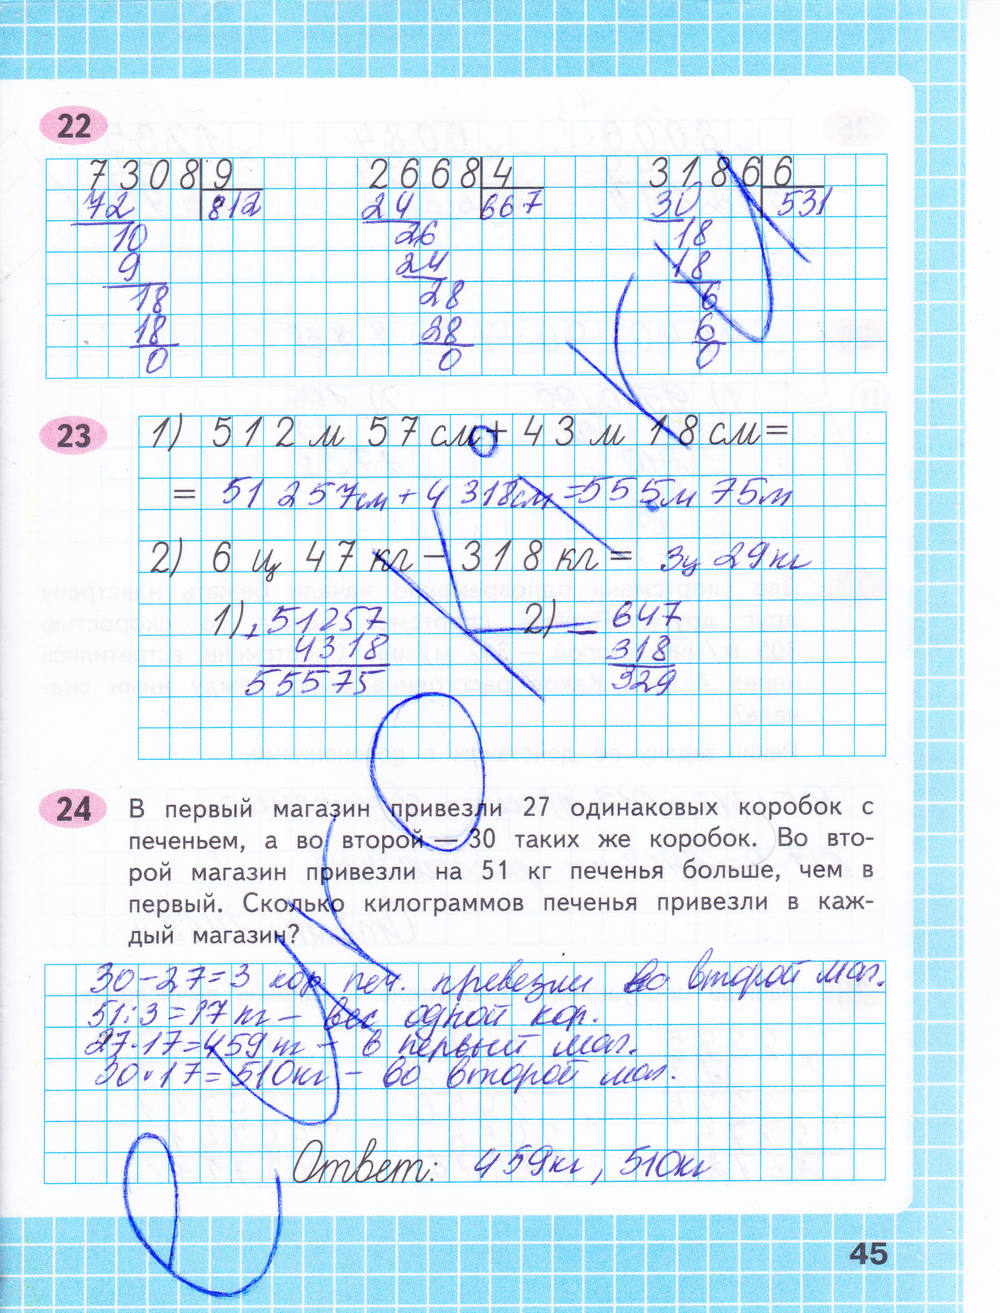 22
7308 9
72 812
10
9
18
18
0
2668 4
24 667
26
24
28
28
0
3186 6
30 531
18
18
6
6
0
23
1) 512 м 57 см + 43 м 18 см =
= 51 257см + 4 318см = 555м 75м
2) 6 ц 47 кг - 318 кг = 3ц 29кг
1) + 51257
4318
55575
2) - 647
318
329
24
В первый магазин привезли 27 одинаковых коробок с
печеньем, а во второй — 30 таких же коробок. Во вто-
рой магазин привезли на 51 кг печенья больше, чем в
первый. Сколько килограммов печенья привезли в каж-
дый магазин?
30-27=3 кор. печ. привезли во второй маг.
51:3=17кг - вес одной кор.
27·17=459кг - в первый маг.
30·17=510кг - во второй маг.
Ответ: 459кг, 510кг
45